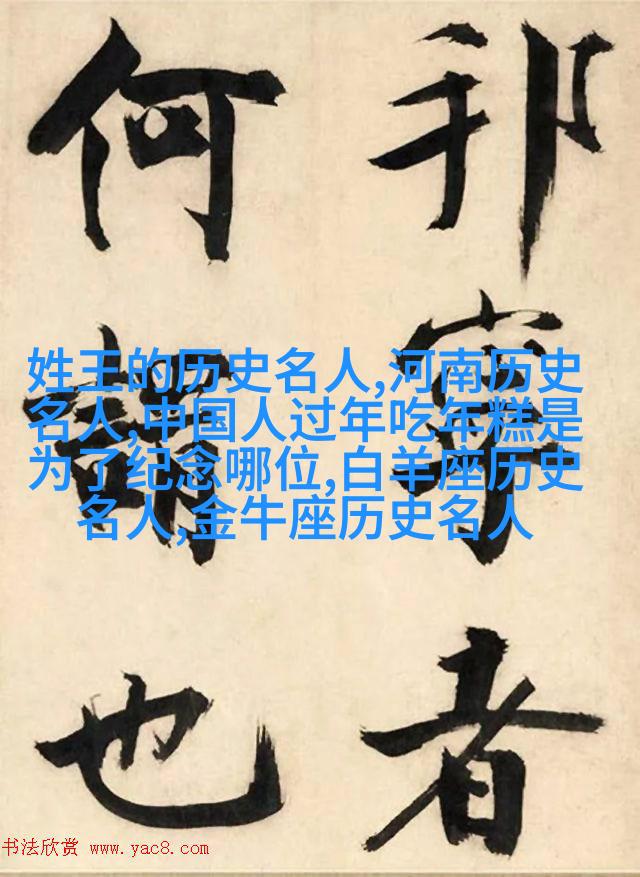 邦寧者
何謂也
姓王的历史名人,河南历史
名人,中国人过年吃年糕是
为了纪念哪位,白羊座历史
名人,金牛座历史名人
书法欣赏 www.yac8.com